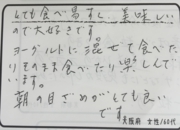 とても食べ易すし、美味しい
ので大好きです。
ヨーグルトに混ぜて食べた
りそのまま食べたり楽しんで
います。
朝の目ざめがとても良い
です。
大阪府 女性/60代